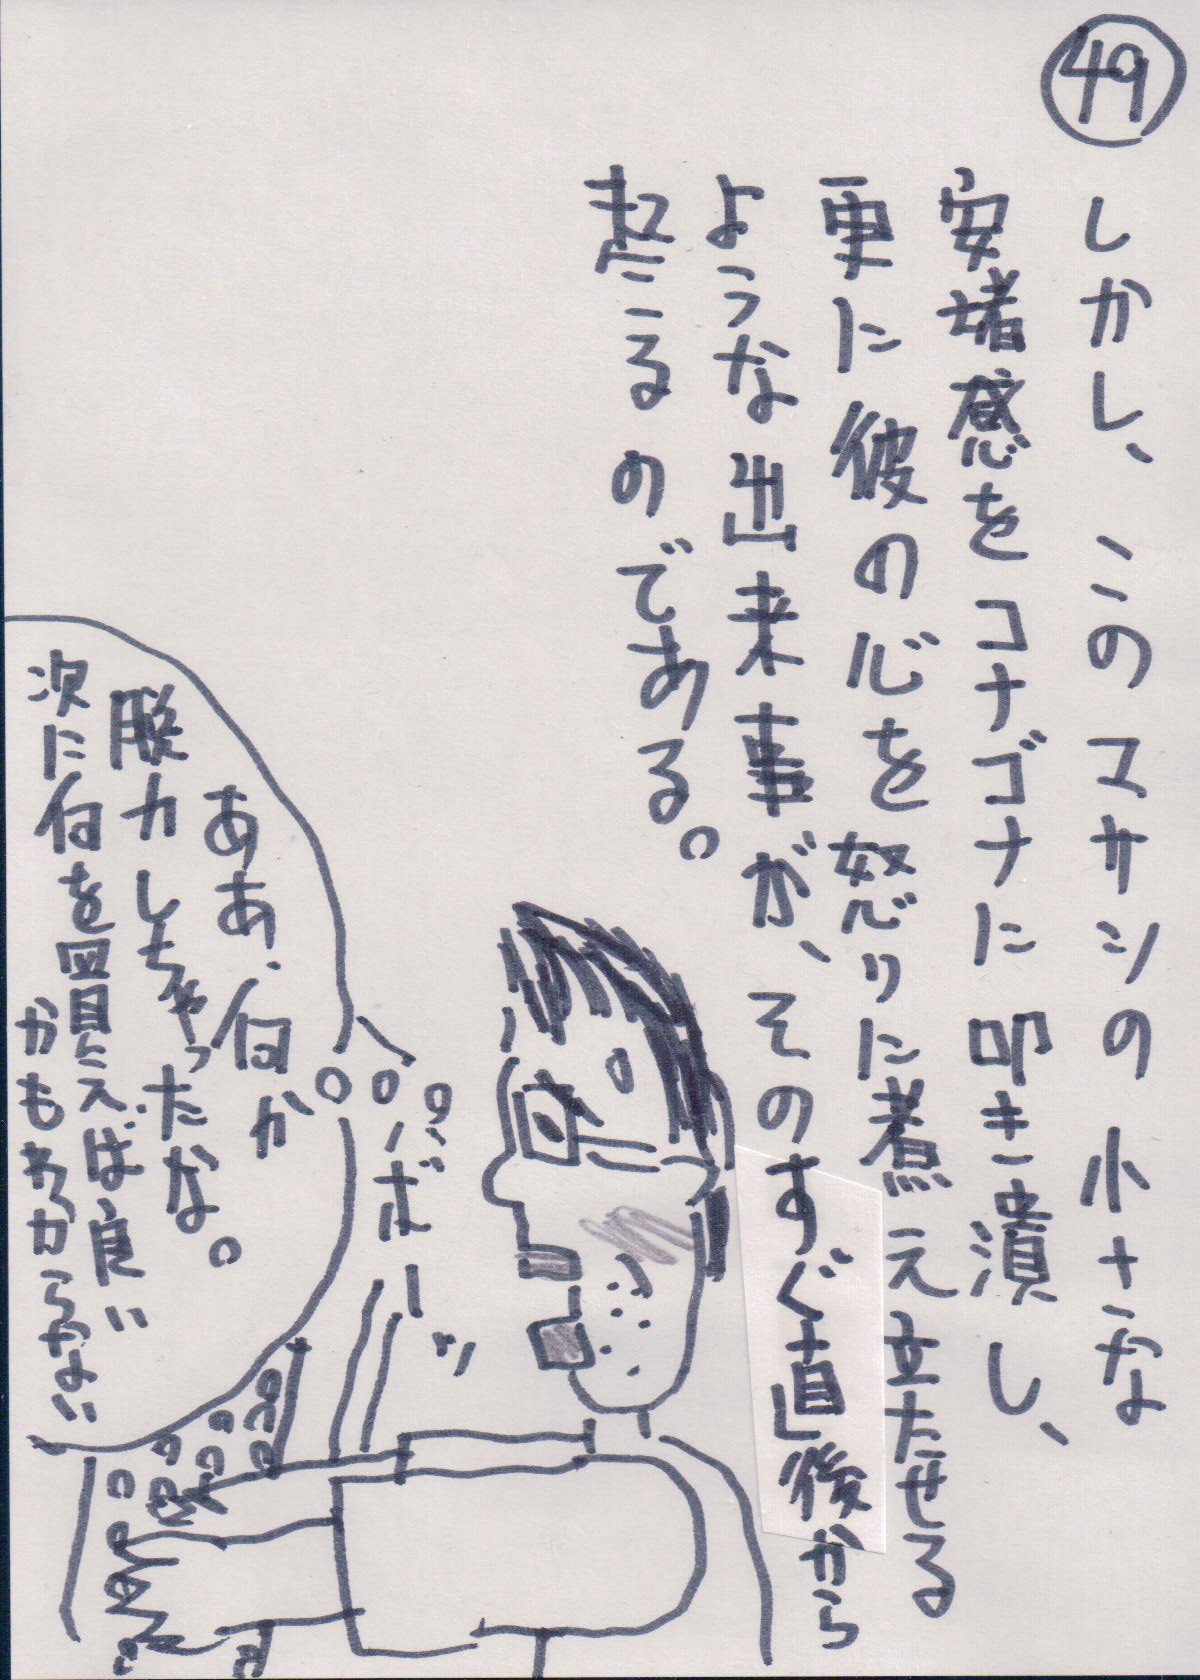 49
しかし、このマサシの小さな
安堵感をコナゴナに叩き潰し、
更に彼の心を怒りに煮え立たせる
ような出来事が、そのすぐ直後から
起こるのである。
ボーッ
ああ、何か
脱力しちゃったな。
次に何を買えば良い
かもわからない